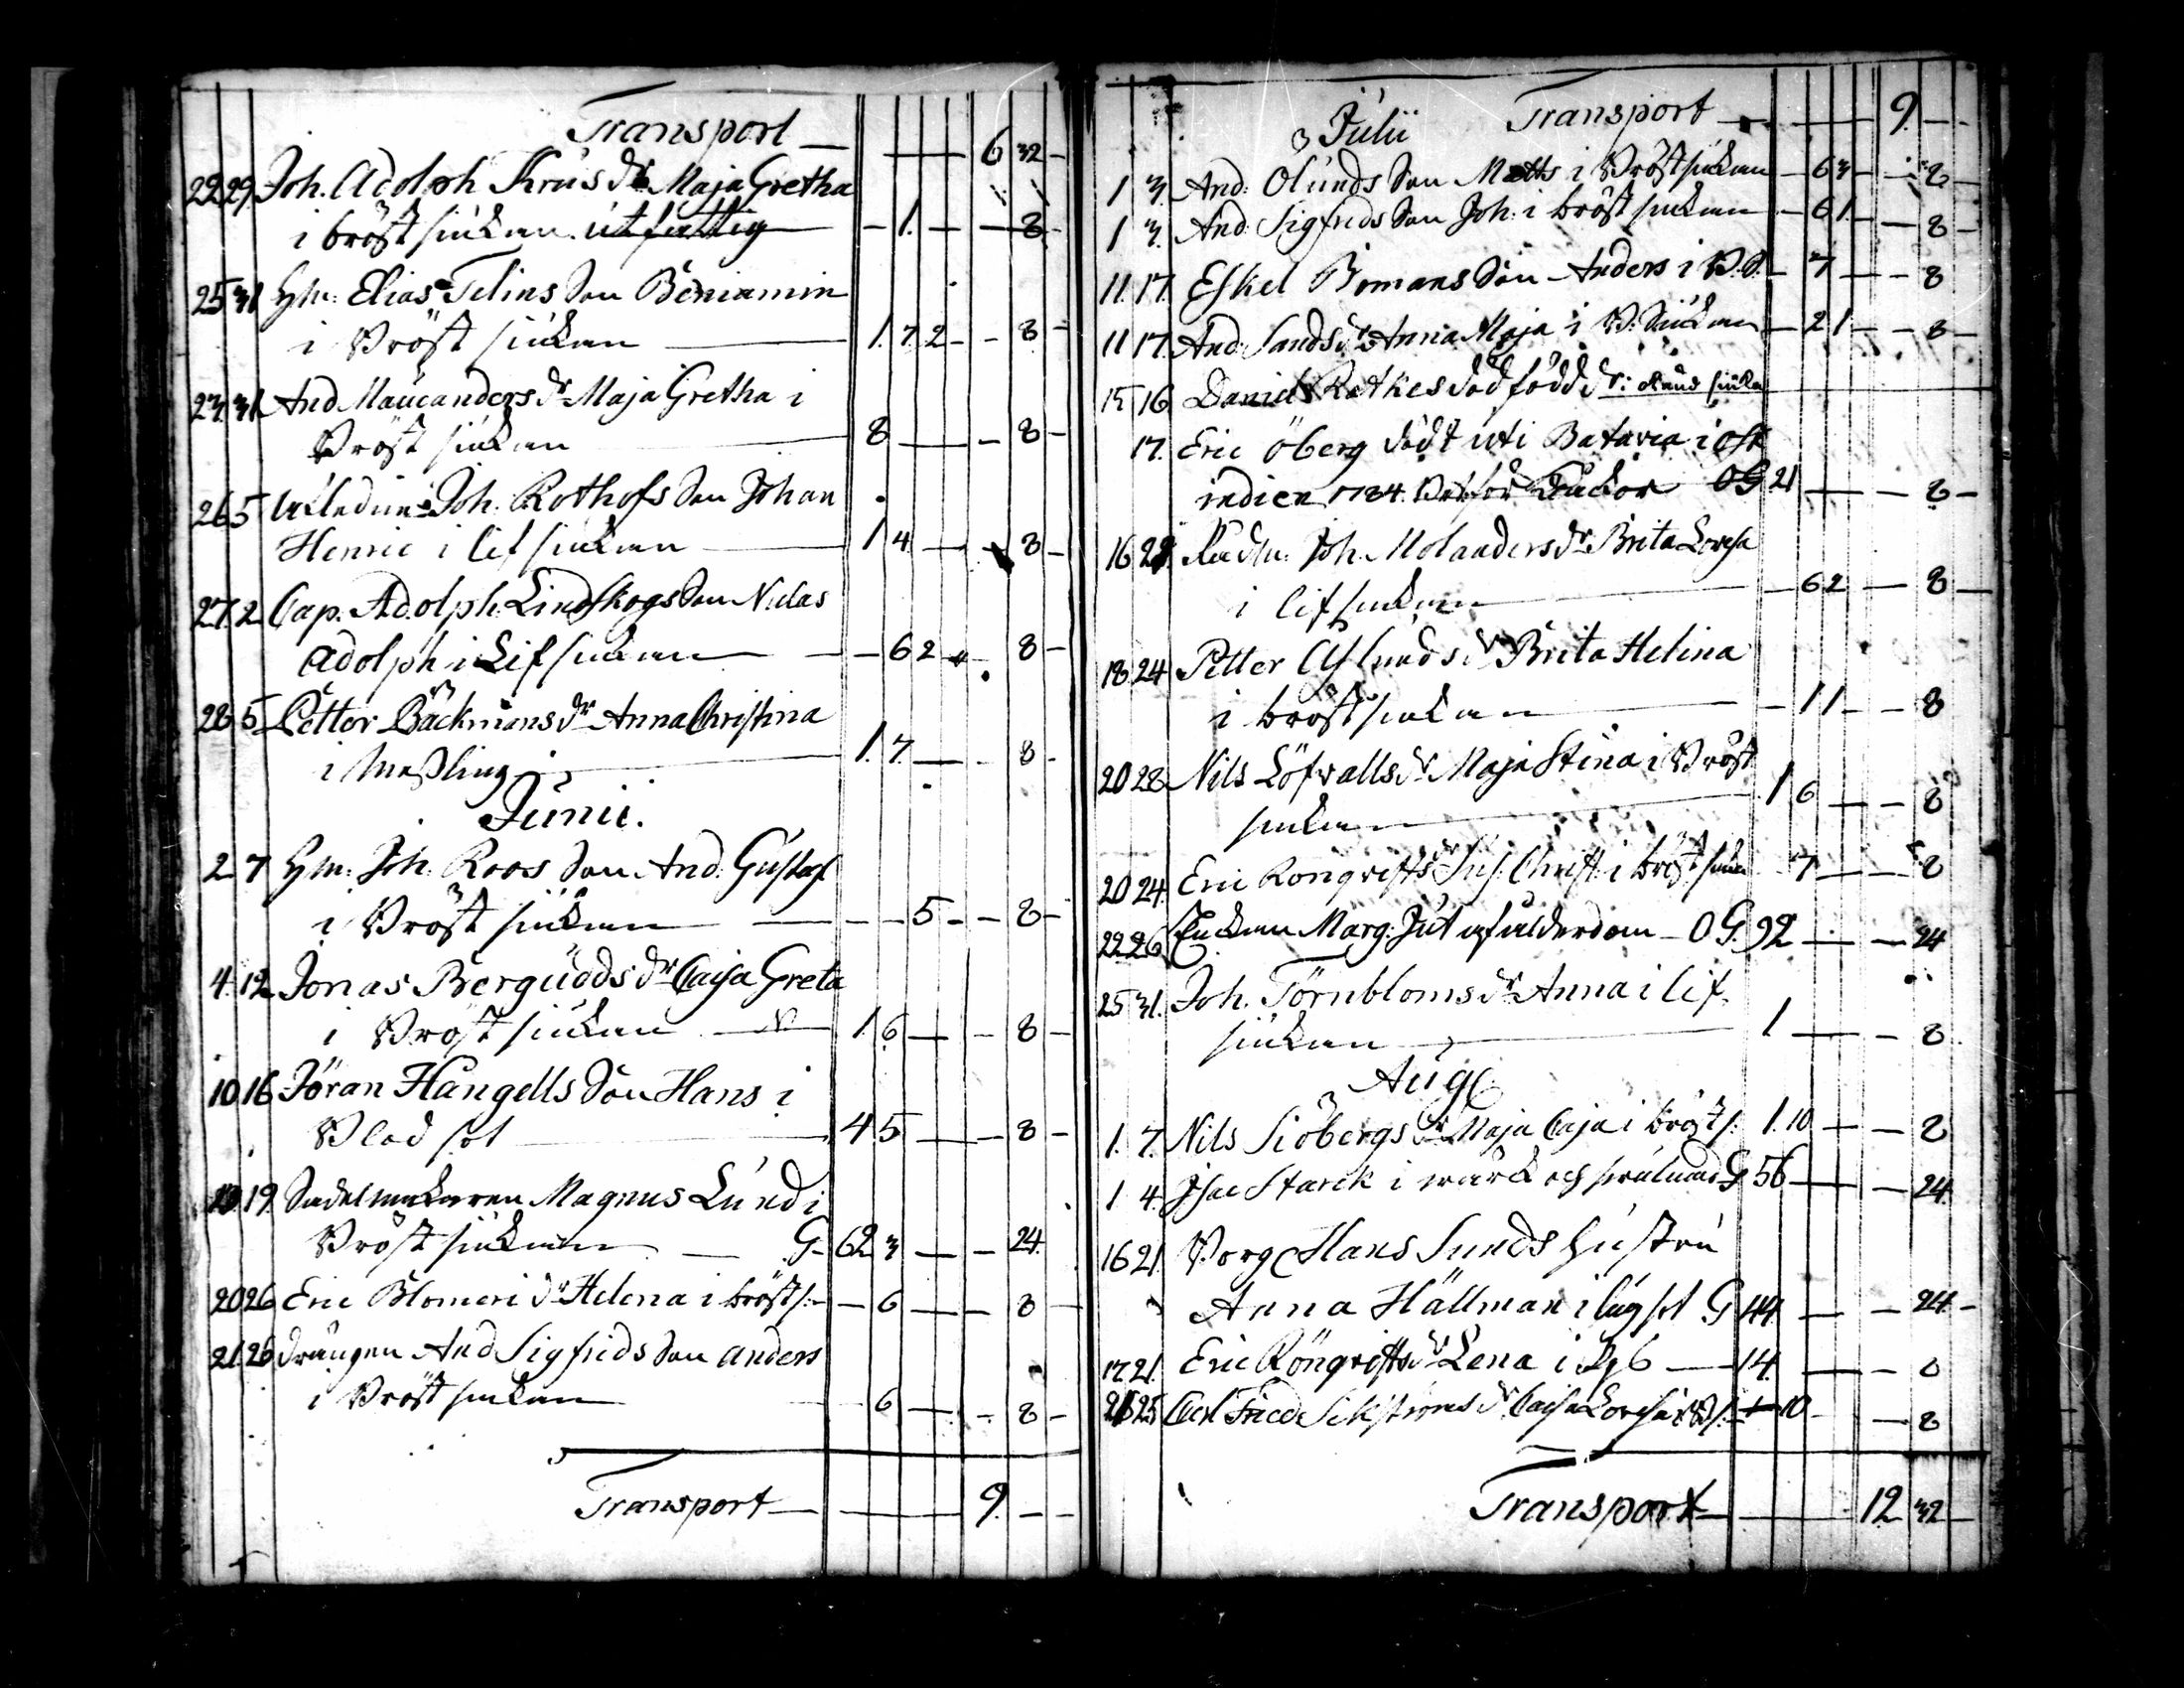 Transport — 6 32 -
22 29. Joh. Adolph Krus dr Maja Gretha
i bröst siukan utfattig - 1. — 8
25 31 Hm: Elias Telins Son Beniamin
i Bröst siukan — 1. 7 2 - - 8 -
23. 31. And Maucanders dr Maja Gretha i
Bröst siukan — 8 — - 8 -
26 5 Joh. Rothofs Son Johan
Henric i lif siukan — 1 4 — 8 -
27. 2 Cap. Adolph Lindskogs Son Niclas
Adolph i Lif siukan — - 6 2 - 8 -
28 5 Petter Bäckmans dr Anna Christina
i Maßling — 1. 7. — 8 -
Junii.
2 7 Hm: Joh. Roos Son And. Gustaf
i Bröst siukan — — 5 - - 8 -
4. 12 Jonas Bergudds dr Caisa Greta
i Bröst siukan — 1. 6 — - 8 -
10 16 Jöran Hangells Son Hans i
Blod sot — 4 5 — - 8 -
19. Sadelmakaren Magnus Lund i
Bröst siukan — G- 62 3 — - 24.
20 26 Eric Blomeri dr Helena i bröst s: - 6 — 8 -
21. 26 Drängen And Sigfrids Son Anders
i Bröst siukan — 6 — - 8 -
Transport — 9. - -
Julii Transport — 9. - -
1 3. And: Ölunds Son Matts i Bröst siukan - 6 3 - - 8 -
1 3. And: Sigfrids Son Joh: i bröst siukan - 6 1 - - 8 -
11. 17. Eskel Bomans Son Anders i B. S. - 7 — 8
11 17. And: Sands dr Anna Maja i B. Siukan - 2 1 - - 8 -
15 16 Daniel Rothes död född dr:
17. Eric Öberg död uti Batavia i Ost
indien 1784. OG 21 — - 8 -
16 23 Joh. Molanders dr Brita Lovisa
i lif siukan — - 6 2 — 8 -
18 24 Petter Aslunds dr Brita Helina
i bröst siukan — - 1 1 - - 8
20 28 Nils Löfvalls dr Maja Stina i Bröst
siukan — 1 6 — - 8
20 24. Eric Rönqvists dr Christ: i bröst siukan 7 — 8
22 26 Enckan Marg: Jut af ålderdom - OG. 92 — - 24
25 31. Joh. Törnbloms dr Anna i lif-
siukan — 1 — - 8
Aug
1. 7. Nils Siöbergs dr Maja Caja i bröst s: 1. 10 — - 8
1 4. Isac Starck i G 56 — - 24.
16 21. Borg Hans Sunds hustru
Anna Hällman i lugsot G 44 — - 24. -
17 21. Eric Rönqvists dr Lena i — 14. — - 8
25 Carl Fried Sikströms dr Caisa Lovisa i B s: 10 - - 8
Transport — 12 32 -